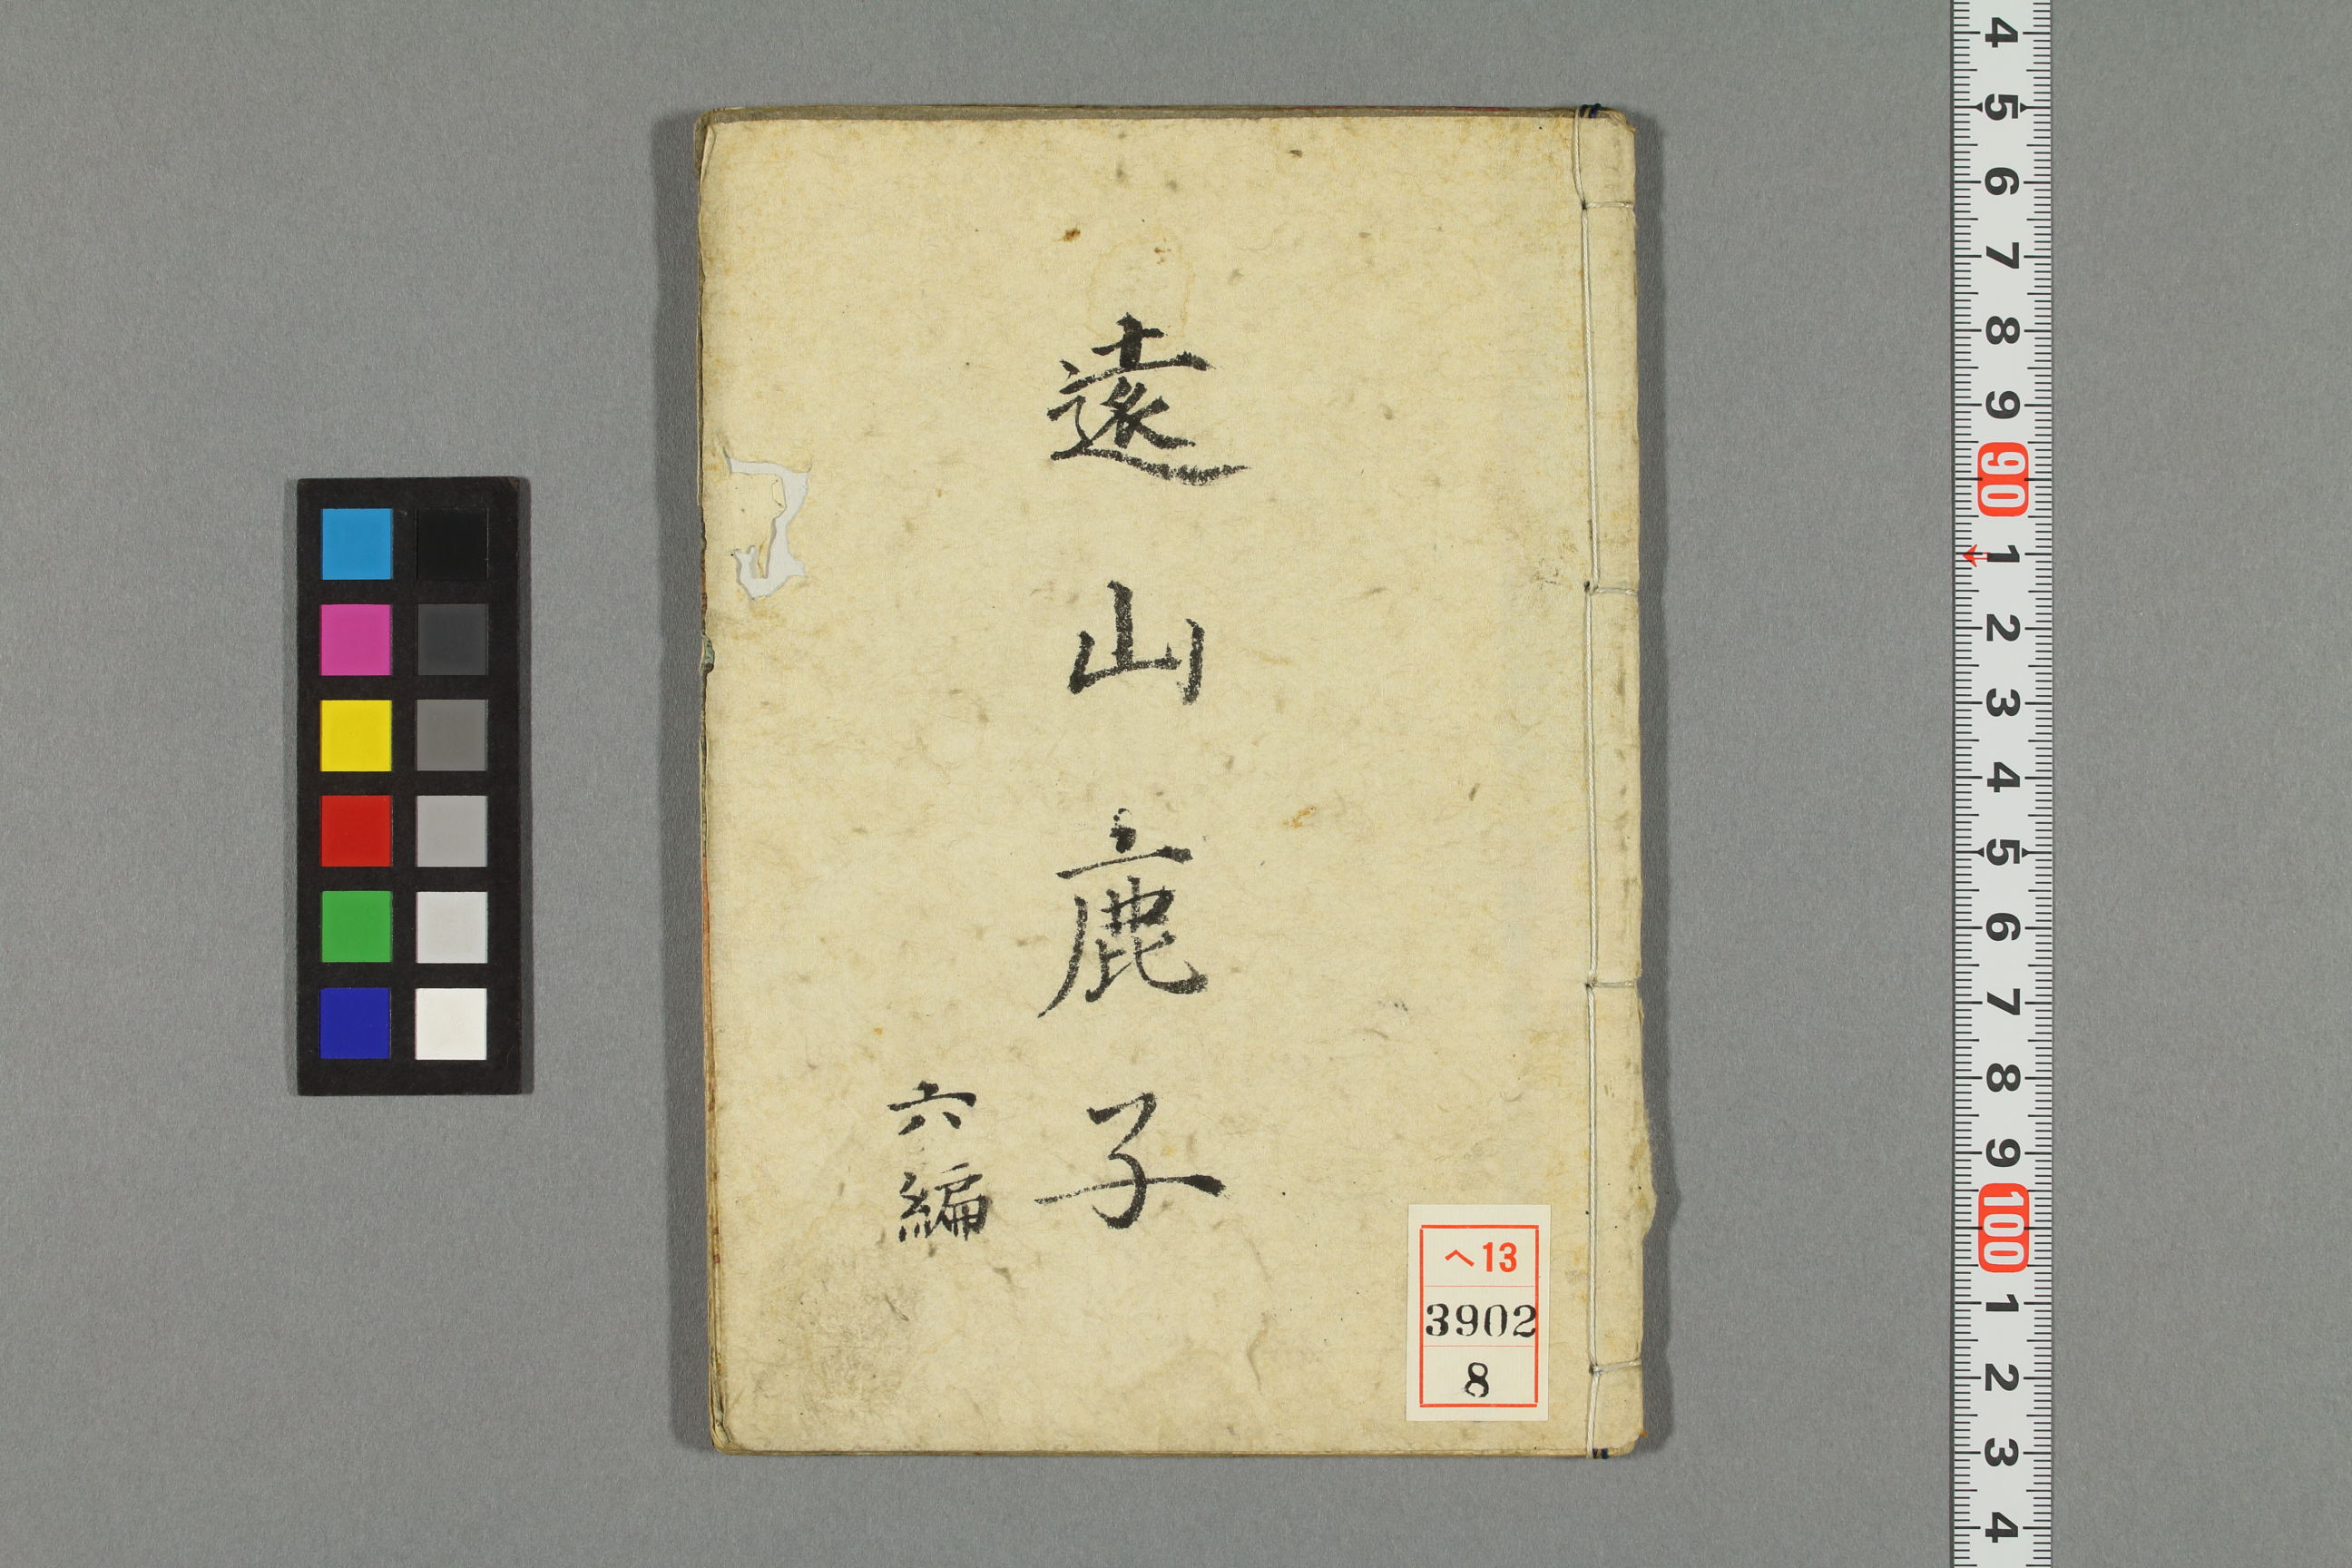 遠山鹿子
六編
ヘ13
3902
8
4
5
6
7
8
9
90
1
2
3
4
5
6
7
8
9
100
1
2
3
4